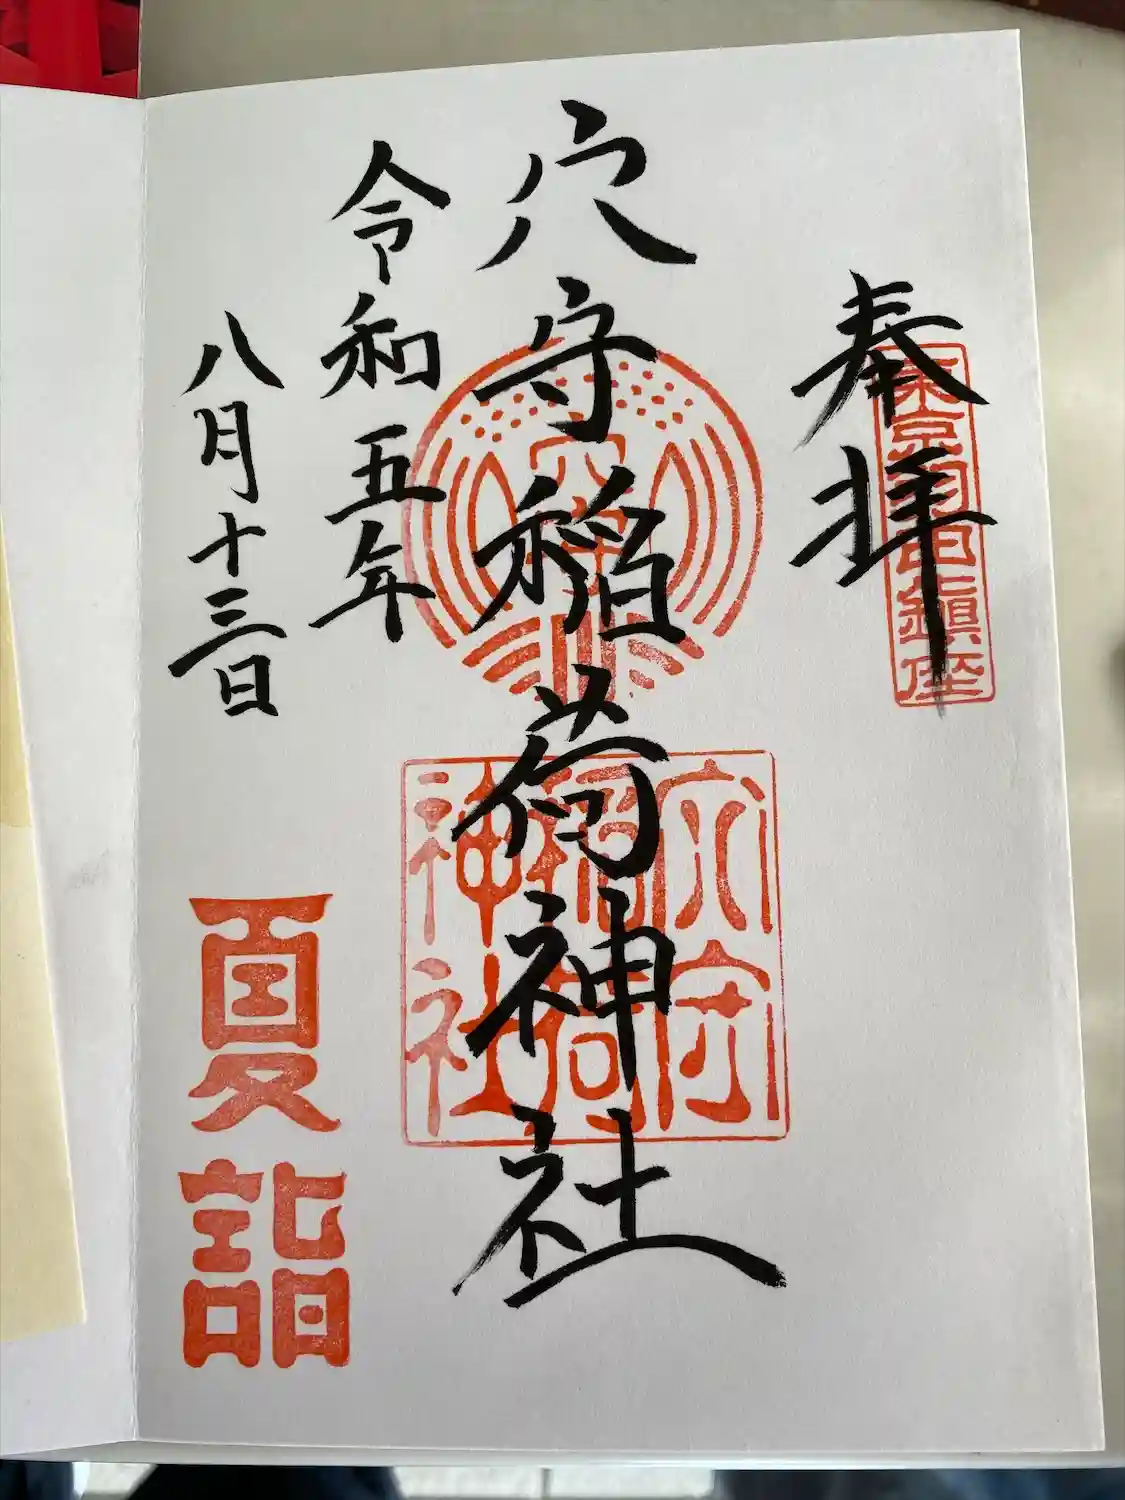 奉拝
東京羽田鎮座
穴守稲荷神社
穴守
稲荷
神社
令和五年
八月十三日
夏詣